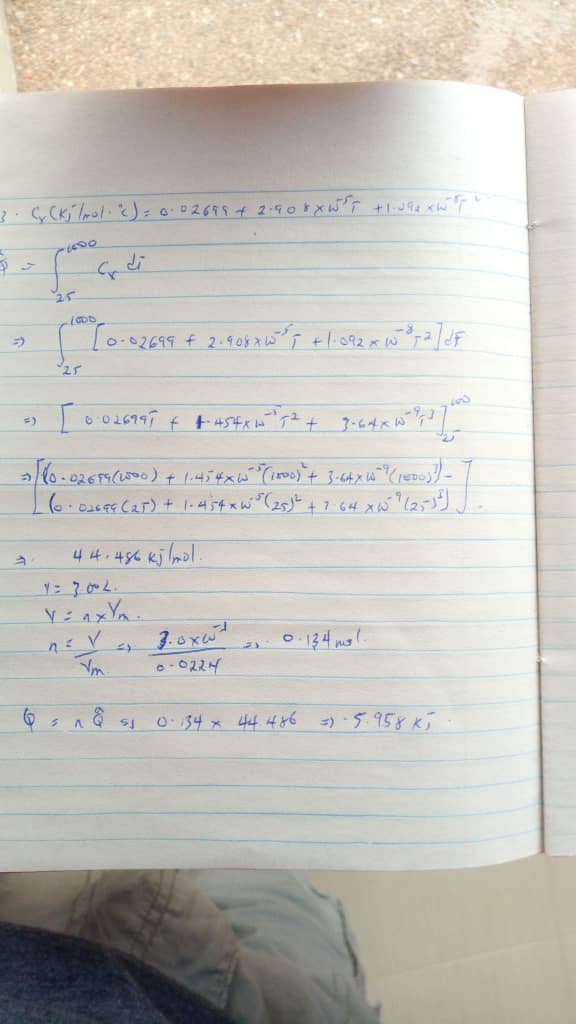 3. Cv (kJ/mol·°C) = 0.02699 + 2.908 x 10^-5 T + 1.092 x 10^-8 T^2
Q̂ = ∫_25^1000 Cv dT
=> ∫_25^1000 [0.02699 + 2.908 x 10^-5 T + 1.092 x 10^-8 T^2] dT
=> [0.02699T + 1.454 x 10^-5 T^2 + 3.64 x 10^-9 T^3]
=> [(0.02699(1000) + 1.454 x 10^-5 (1000)^2 + 3.64 x 10^-9 (1000)^3) -
(0.02699(25) + 1.454 x 10^-5 (25)^2 + 3.64 x 10^-9 (25)^3)].
=> 44.486 kJ/mol.
V = 3.00L.
V = n x Vm.
n = V/Vm => 3.0 x 10^-3/0.0224 => 0.134 mol.
Q = n Q̂ => 0.134 x 44.486 => 5.958 kJ.